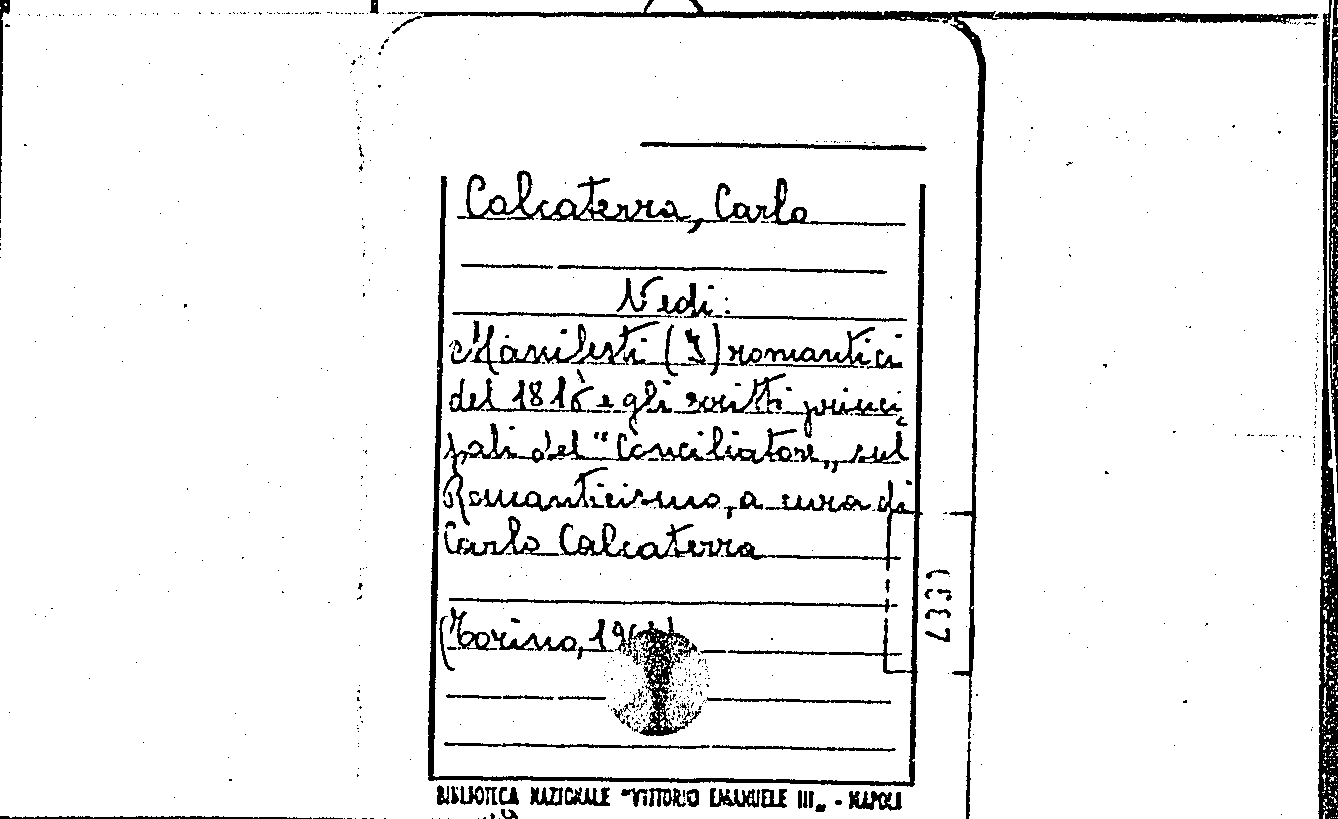 Calcaterra, Carlo
Vedi:
Manifesti (I) romantici
del 1816 e gli scritti princi
pali del "Conciliatore„ sul
Romanticismo, a cura di
Carlo Calcaterra
(Torino,
BIBLIOTECA NAZIONALE "VITTORIO EMANUELE III„ - NAPOLI